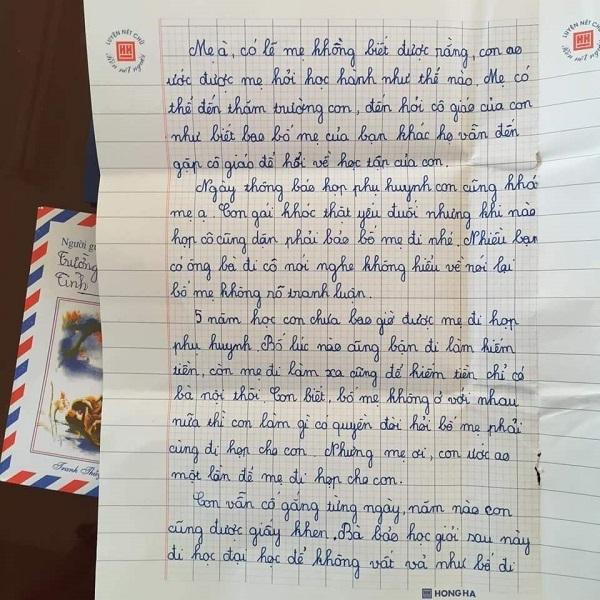 LUYỆN NÉT CHỮ
HH
LUYỆN NÉT CHỮ
HH
Mẹ à, có lẽ mẹ không biết được rằng, con ao
ước được mẹ hỏi học hành như thế nào. Mẹ có
thể đến thăm trường con, đến hỏi cô giáo của con
như biết bao bố mẹ của bạn khác họ vẫn đến
gặp cô giáo để hỏi về học tấn của con.
Ngày thông báo họp phụ huynh con cũng khó
mẹ ạ. Con gái khóc thật yếu đuối nhưng khi nào
họp cô cũng dặn phải bảo bố mẹ đi nhé. Nhiều bạn
có ông bà đi cô nói nghe không hiểu về nói lại
bố mẹ không rõ tranh luận.
5 năm học con chưa bao giờ được mẹ đi họp
phụ huynh. Bố lúc nào cũng bận đi làm kiếm
tiền, còn mẹ đi làm xa cũng để kiếm tiền chỉ có
bà nội thôi. Con biết, bố mẹ không ở với nhau
nữa thì con làm gì có quyền đòi hỏi bố mẹ phải
cùng đi họp cho con. Nhưng mẹ ơi, con ước ao
một lần để mẹ đi họp cho con.
Con vẫn cố gắng từng ngày, năm nào con
cũng được giấy khen. Bà bảo học giỏi sau này
đi học đại học để không vất vả như bố đi
HONG HA
Người gử
Trường
Tình
Tranh Thủy